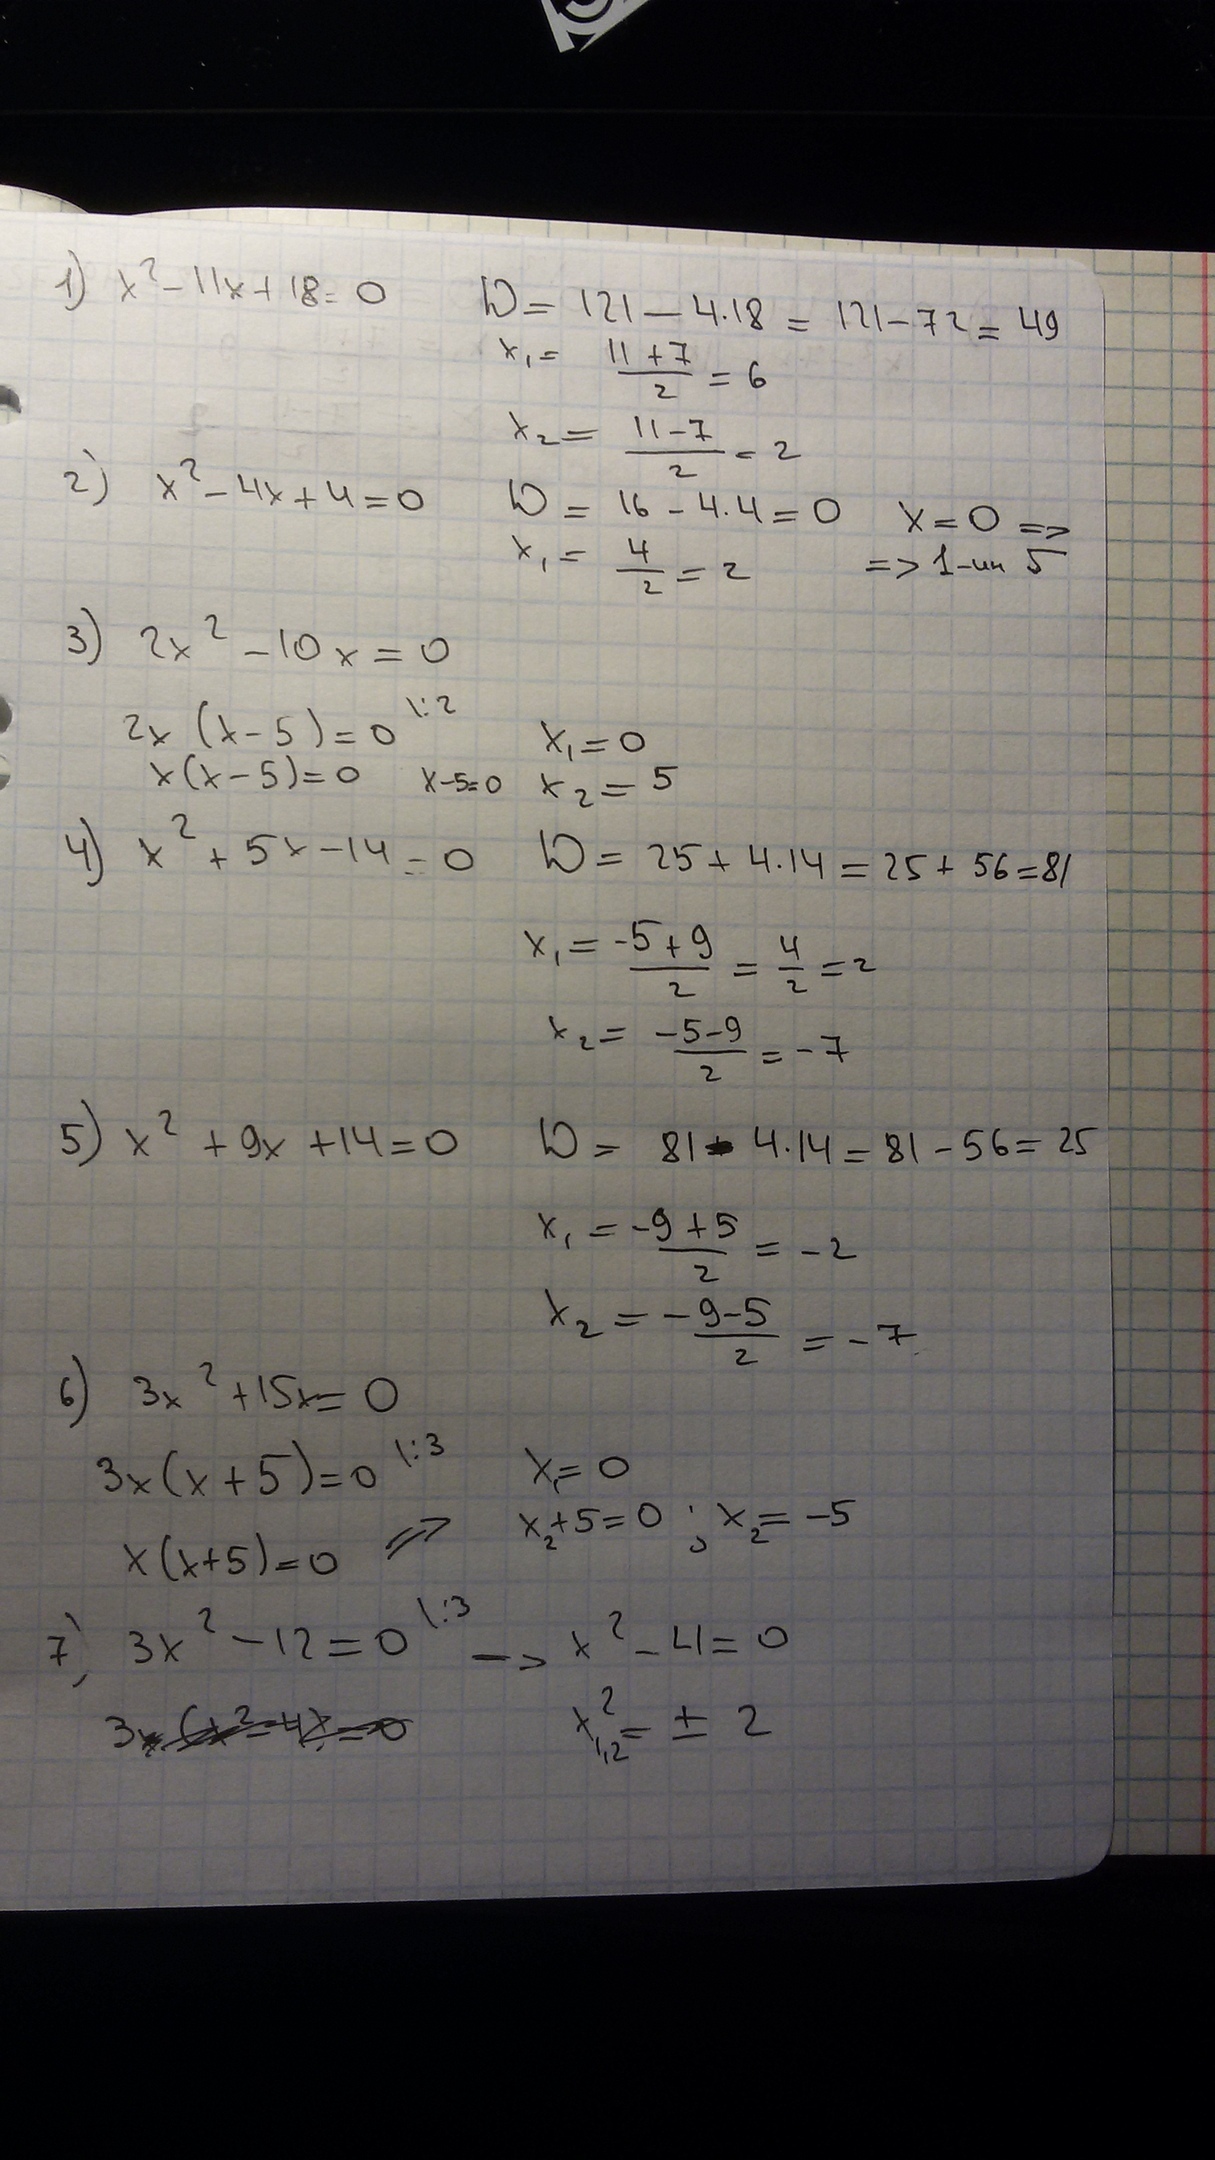 1) x² - 11x + 18 = 0 D = 121 - 4·18 = 121 - 72 = 49
x₁ = (11 + 7)/2 = 6
x₂ = (11 - 7)/2 = 2
2) x² - 4x + 4 = 0 D = 16 - 4·4 = 0 x = 0 =>
x₁ = 4/2 = 2 => 1-ин
3) 2x² - 10x = 0
2x (x - 5) = 0 \:2 x₁ = 0
x(x - 5) = 0 x - 5 = 0 x₂ = 5
4) x² + 5x - 14 = 0 D = 25 + 4·14 = 25 + 56 = 81
x₁ = (-5 + 9)/2 = 4/2 = 2
x₂ = (-5 - 9)/2 = -7
5) x² + 9x + 14 = 0 D = 81 - 4·14 = 81 - 56 = 25
x₁ = (-9 + 5)/2 = -2
x₂ = (-9 - 5)/2 = -7
6) 3x² + 15x = 0
3x(x + 5) = 0 \:3 x₁ = 0
x(x + 5) = 0 => x₂ + 5 = 0 ; x₂ = -5
7) 3x² - 12 = 0 \:3 -> x² - 4 = 0
3x (x² - 4) = 0 x²₁,₂ = ± 2